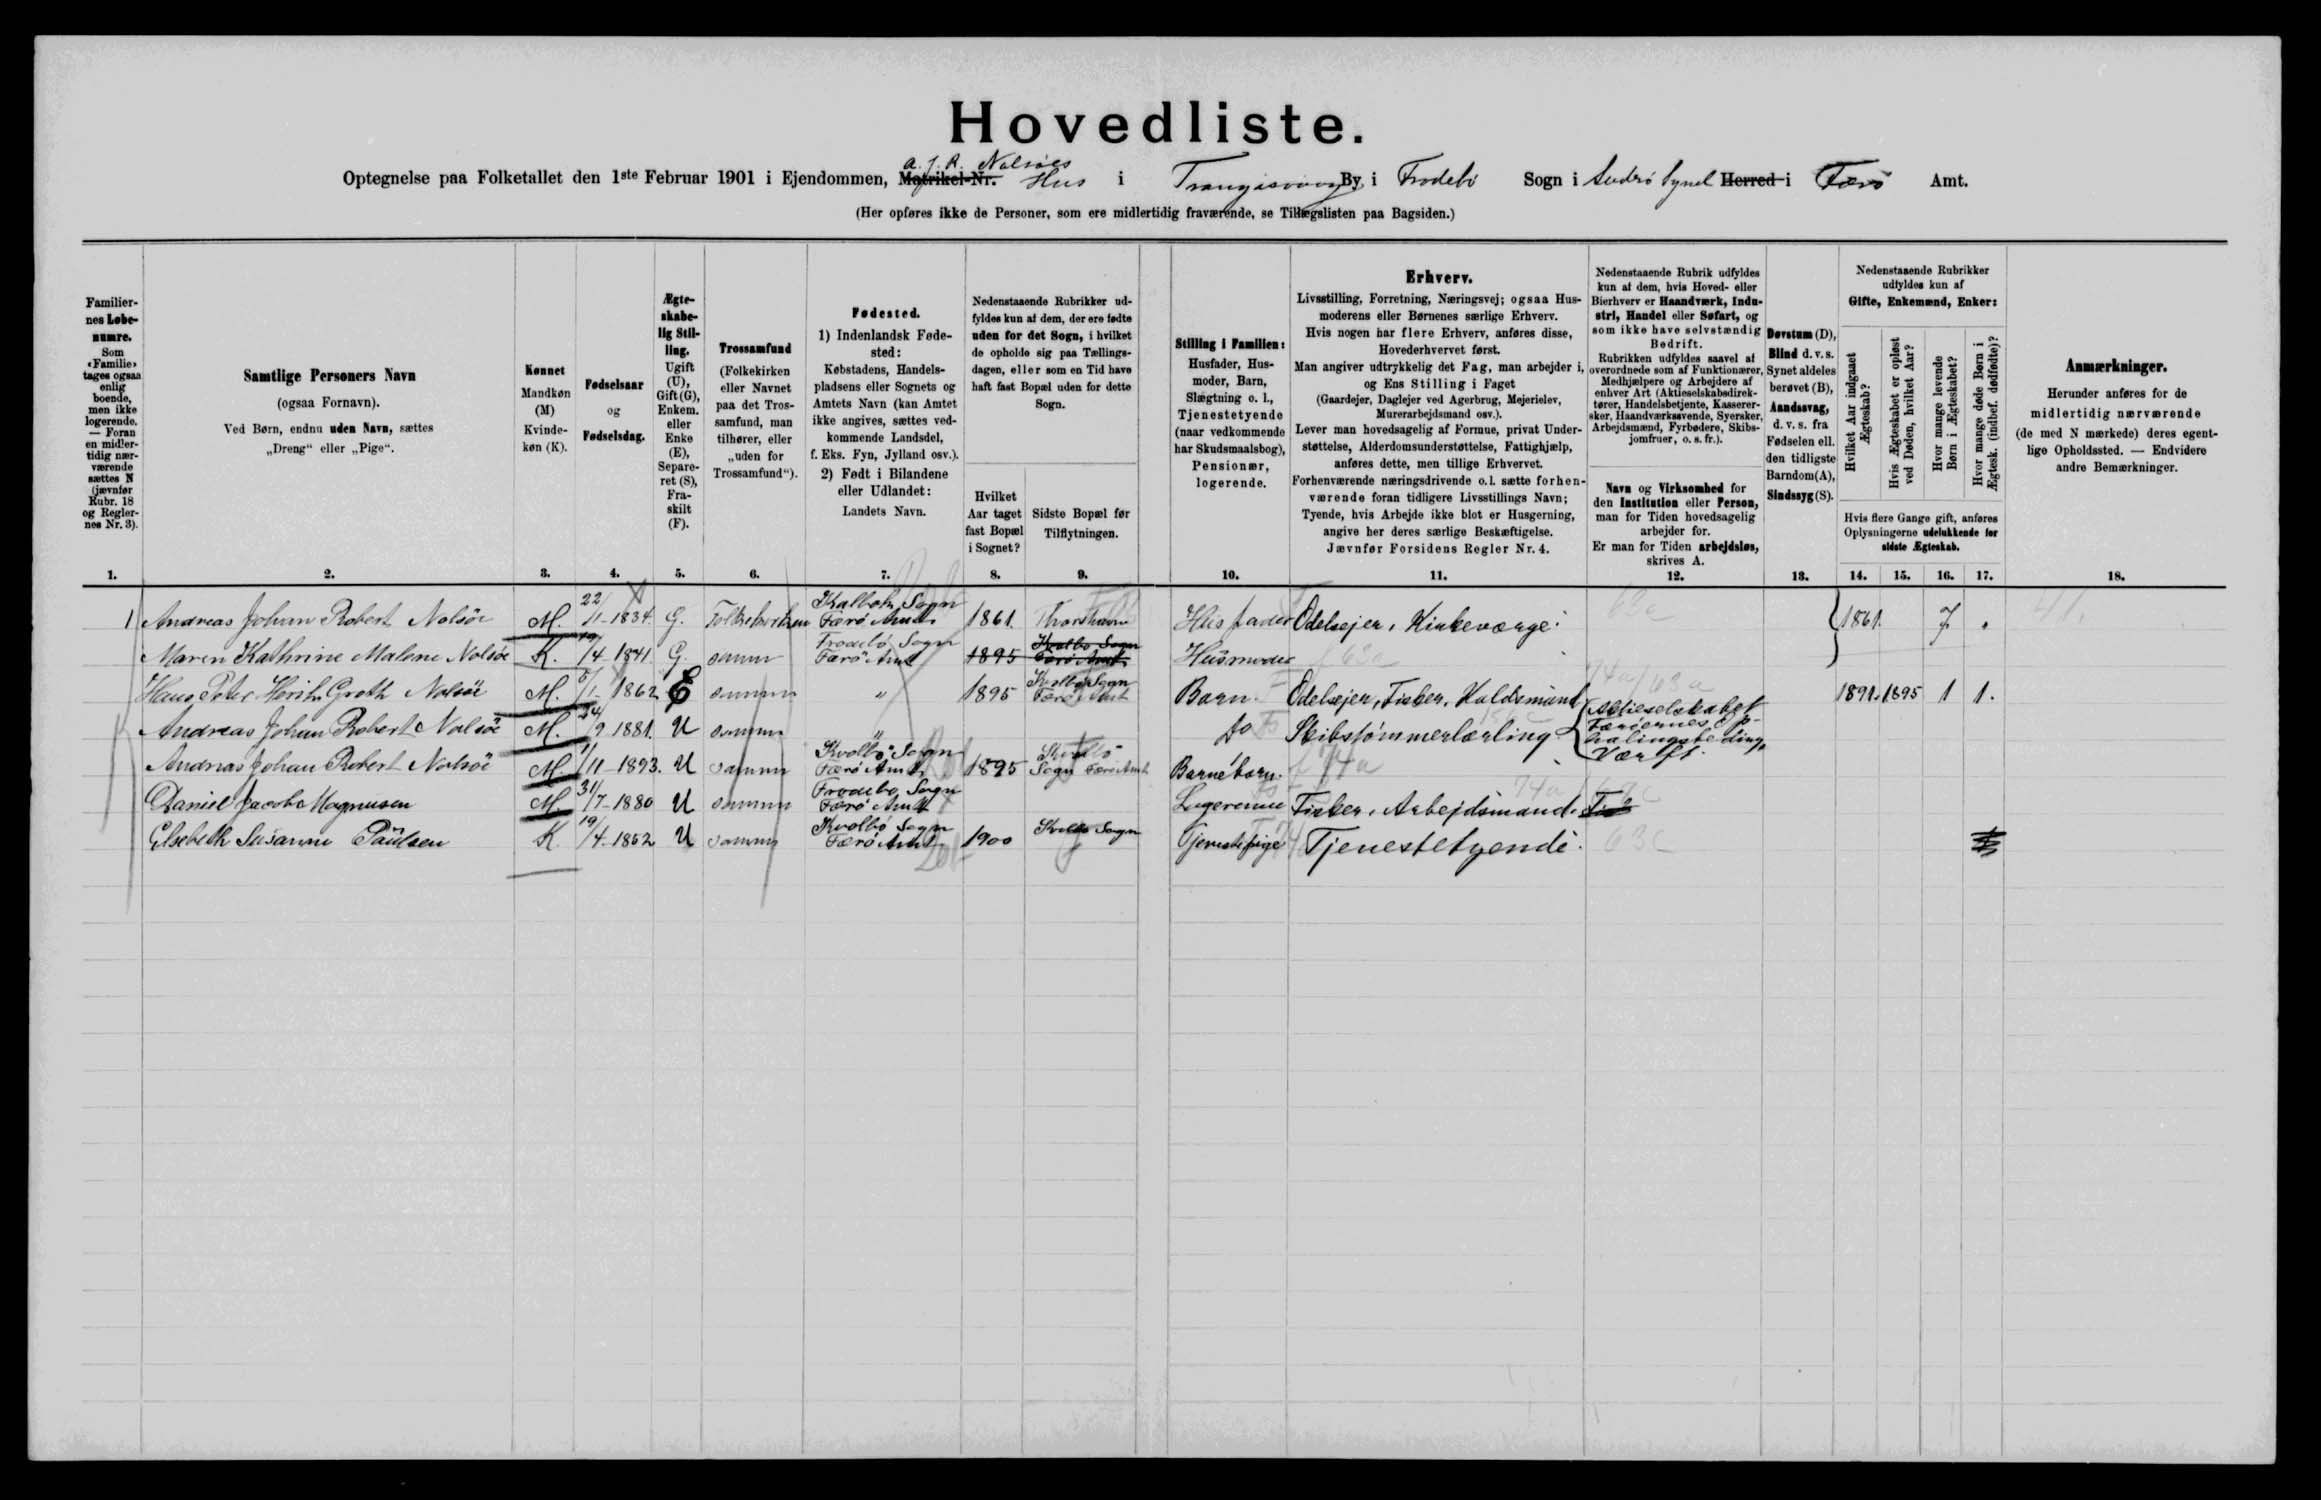 Hovedliste.
Optegnelse paa Folketallet den 1ste Februar 1901 i Ejendommen, Matrikel-Nr. A. J. R. Nolsöes Hus i Trangisvaag By i Frodebö Sogn i Suderö Syssel Herred i Færö Amt.
(Her opføres ikke de Personer, som ere midlertidig fraværende, se Tillægslisten paa Bagsiden.)
Familiernes Løbenumre. Som «Familie» tages ogsaa enlig boende, men ikke logerende. — Foran en midlertidig nærværende sættes N (jævnfør Rubr. 18 og Reglernes Nr. 3).
Samtlige Personers Navn (ogsaa Fornavn). Ved Børn, endnu uden Navn, sættes „Dreng“ eller „Pige“.
Kønnet Mandkøn (M) Kvindekøn (K).
Fødselsaar og Fødselsdag.
Ægteskabelig Stilling. Ugift (U), Gift (G), Enkem. eller Enke (E), Separeret (S), Fraskilt (F).
Trossamfund (Folkekirken eller Navnet paa det Trossamfund, man tilhører, eller „uden for Trossamfund“).
Fødested. 1) Indenlandsk Fødested: Købstadens, Handelspladsens eller Sognets og Amtets Navn (kan Amtet ikke angives, sættes vedkommende Landsdel, f. Eks. Fyn, Jylland osv.). 2) Født i Bilandene eller Udlandet: Landets Navn.
Nedenstaaende Rubrikker udfyldes kun af dem, der ere fødte uden for det Sogn, i hvilket de opholde sig paa Tællingsdagen, eller som en Tid have haft fast Bopæl uden for dette Sogn.
Hvilket Aar taget fast Bopæl i Sognet?
Sidste Bopæl før Tilflytningen.
Stilling i Familien: Husfader, Husmoder, Barn, Slægtning o. l., Tjenestetyende (naar vedkommende har Skudsmaalsbog), Pensionær, logerende.
Erhverv. Livsstilling, Forretning, Næringsvej; ogsaa Husmoderens eller Børnenes særlige Erhverv. Hvis nogen har flere Erhverv, anføres disse, Hovederhvervet først. Man angiver udtrykkelig det Fag, man arbejder i, og Ens Stilling i Faget (Gaardejer, Daglejer ved Agerbrug, Mejerielev, Murerarbejdsmand osv.). Lever man hovedsagelig af Formue, privat Understøttelse, Alderdomsunderstøttelse, Fattighjælp, anføres dette, men tillige Erhvervet. Forhenværende næringsdrivende o. l. sætte forhenværende foran tidligere Livsstillings Navn; Tyende, hvis Arbejde ikke blot er Husgerning, angive her deres særlige Beskæftigelse. Jævnfør Forsidens Regler Nr. 4.
Nedenstaaende Rubrik udfyldes kun af dem, hvis Hoved- eller Bierhverv er Haandværk, Industri, Handel eller Søfart, og som ikke have selvstændig Bedrift. Rubrikken udfyldes saavel af overordnede som af Funktionærer, Medhjælpere og Arbejdere af enhver Art (Aktieselskabsdirektører, Handelsbetjente, Kasserersker, Haandværkssvende, Syersker, Arbejdsmænd, Fyrbødere, Skibsjomfruer, o. s. fr.).
Navn og Virksomhed for den Institution eller Person, man for Tiden hovedsagelig arbejder for. Er man for Tiden arbejdsløs, skrives A.
Døvstum (D), Blind d. v. s. Synet aldeles berøvet (B), Aandssvag, d. v. s. fra Fødselen ell. den tidligste Barndom (A), Sindssyg (S).
Nedenstaaende Rubrikker udfyldes kun af Gifte, Enkemænd, Enker:
Hvilket Aar indgaaet Ægteskab?
Hvis Ægteskabet er opløst ved Døden, hvilket Aar?
Hvor mange levende Børn i Ægteskabet?
Hvor mange døde Børn i Ægtesk. (indbef. dødfødte)?
Hvis flere Gange gift, anføres Oplysningerne udelukkende for sidste Ægteskab.
Anmærkninger. Herunder anføres for de midlertidig nærværende (de med N mærkede) deres egentlige Opholdssted. — Endvidere andre Bemærkninger.
1. 2. 3. 4. 5. 6. 7. 8. 9. 10. 11. 12. 13. 14. 15. 16. 17. 18.
1 Andreas Johan Robert Nolsöe M. 22/1-1834. G. Folkekirken Færö Amt 1861. Thorshavn Husfader Odelsejer, Kirkeværge. 63a 1861. 7 41.
Maren Kathrine Malene Nolsöe K. 19/4-1841 G. samme Frodebö Sogn Færö Amt 1895 Kvalbö Sogn Færö Amt Husmoder f 63a
Hans Peter Groth Nolsöe M. 5/1-1862 E samme " 1895 Kvalbö Sogn Færö Amt Barn Odelsejer, Fisker, 74a/63a 1891. 1895 1 1.
Andreas Johan Robert Nolsöe M. 24/9 1881. U samme " do Skibstömmerlærling Aktieselskabet Færöernes Værft.
Andreas Johan Robert Nolsöe M. 1/11-1893. U samme Kvalbö Sogn Færö Amt 1895 Kvalbö Sogn Færö Amt Barnebarn. f 74a
Daniel Jacob Magnusen M. 31/7-1880 U samme Frodebö Sogn Færö Amt Logerende Fisker, Arbejdsmand. 74a
Elsebeth Susanne Paulsen K. 19/4-1852 U samme Kvalbö Sogn Færö Amt 1900 Kvalbö Sogn Tjenestepige Tjenestetyende. 63c